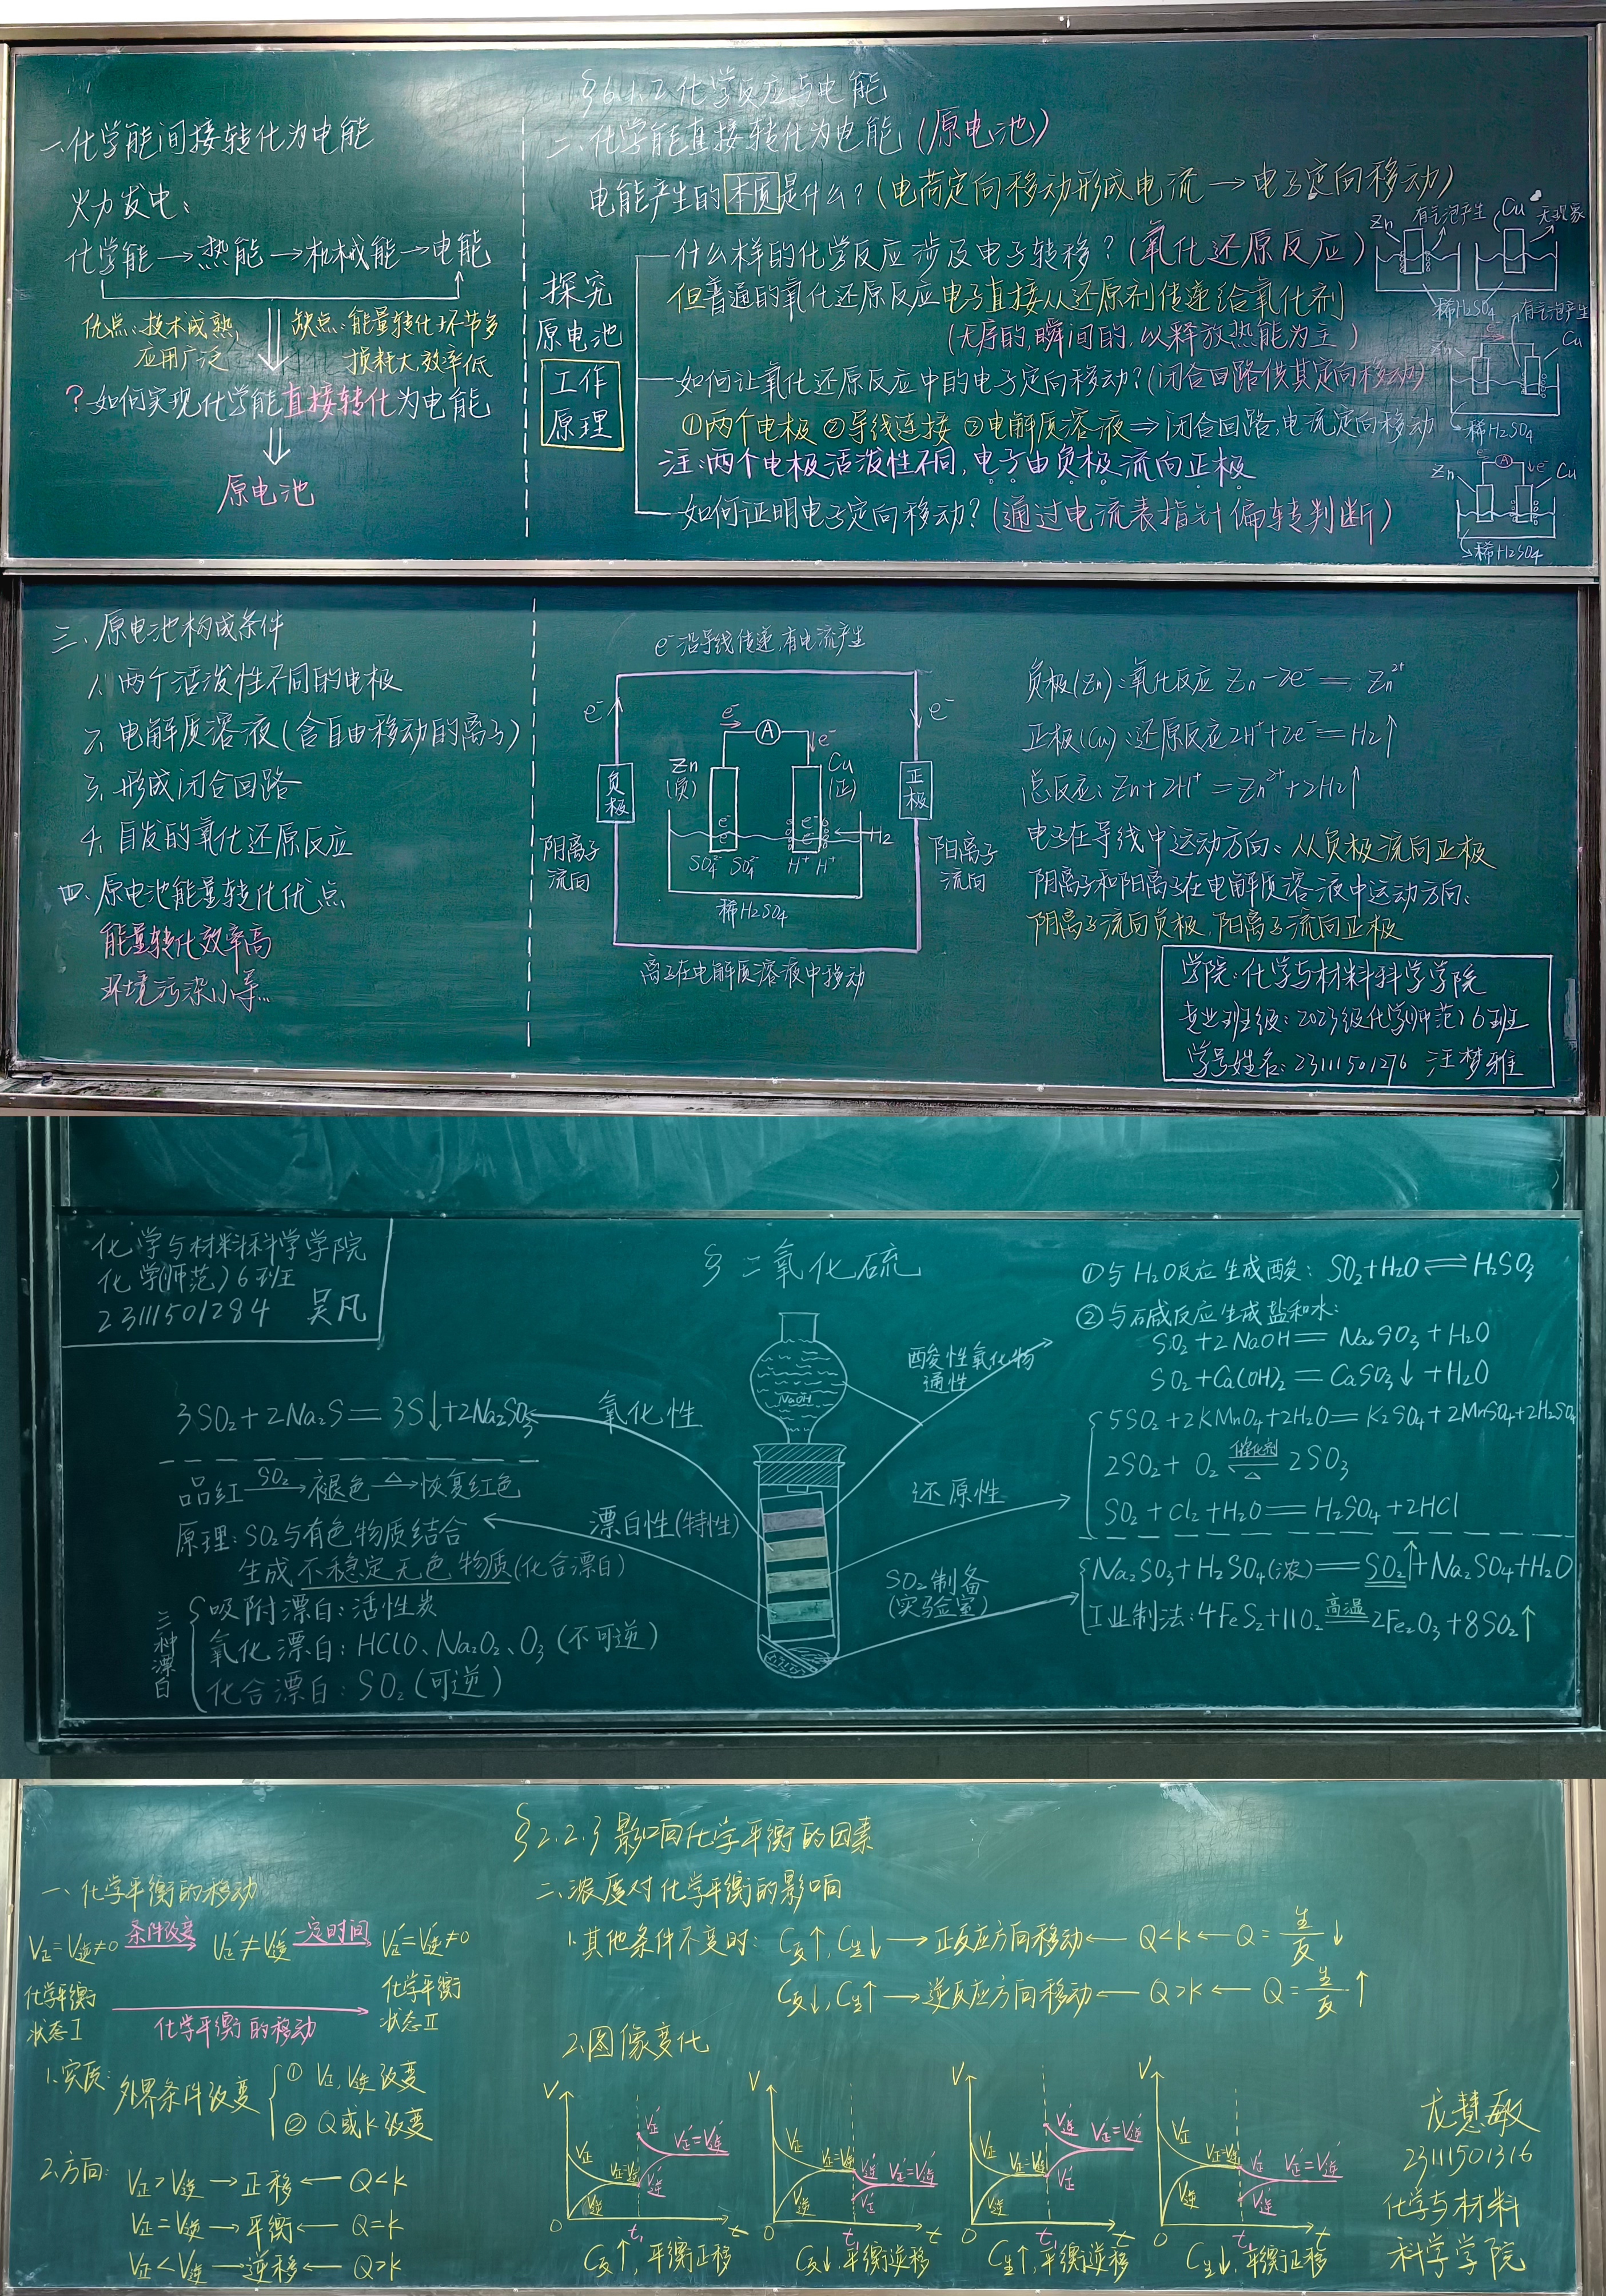 §6.1.2 化学反应与电能
一、化学能间接转化为电能
火力发电:
化学能→热能→机械能→电能
优点:技术成熟,
应用广泛
缺点:能量转化环节多
损耗大,效率低
?如何实现化学能直接转化为电能
原电池
二、化学能直接转化为电能(原电池)
电能产生的本质是什么?(电荷定向移动形成电流→电子定向移动)
探究
原电池
工作
原理
什么样的化学反应涉及电子转移?(氧化还原反应)
但普通的氧化还原反应电子直接从还原剂传递给氧化剂
(无序的,瞬间的,以释放热能为主)
如何让氧化还原反应中的电子定向移动?(闭合回路供其定向移动)
①两个电极 ②导线连接 ③电解质溶液⇒闭合回路,电流定向移动
注:两个电极活泼性不同,电子由负极流向正极
如何证明电子定向移动?(通过电流表指针偏转判断)
Zn 有气泡产生 Cu 无现象
稀H₂SO₄
有气泡产生
Zn e⁻ Cu
稀H₂SO₄
Zn A e⁻ Cu
稀H₂SO₄
三、原电池构成条件
1、两个活泼性不同的电极
2、电解质溶液(含自由移动的离子)
3、形成闭合回路
4、自发的氧化还原反应
四、原电池能量转化优点
能量转化效率高
环境污染小等...
e⁻沿导线传递,有电流产生
e⁻ e⁻ A e⁻ e⁻
Zn
(负)
Cu
(正)
负极
正极
e⁻ e⁻
e⁻ e⁻
H₂
阴离子
流向
阳离子
流向
SO₄²⁻ SO₄²⁻ H⁺ H⁺
稀H₂SO₄
离子在电解质溶液中移动
负极(Zn):氧化反应 Zn-2e⁻=Zn²⁺
正极(Cu):还原反应2H⁺+2e⁻=H₂↑
总反应:Zn+2H⁺=Zn²⁺+2H₂↑
电子在导线中运动方向:从负极流向正极
阴离子和阳离子在电解质溶液中运动方向:
阴离子流向负极,阳离子流向正极
学院:化学与材料科学学院
专业班级:2023级化学(师范)6班
学号姓名:23111501276 汪梦雅
化学与材料科学学院
化学(师范)6班
23111501284 吴凡
§二氧化硫
3SO₂+2Na₂S=3S↓+2Na₂SO₃
氧化性
品红 SO₂→褪色 △→恢复红色
原理:SO₂与有色物质结合
生成不稳定无色物质(化合漂白)
漂白性(特性)
三种漂白
吸附漂白:活性炭
氧化漂白:HClO、Na₂O₂、O₃(不可逆)
化合漂白:SO₂(可逆)
NaOH
酸性氧化物
通性
还原性
SO₂制备
(实验室)
①与H₂O反应生成酸:SO₂+H₂O⇌H₂SO₃
②与碱反应生成盐和水:
SO₂+2NaOH=Na₂SO₃+H₂O
SO₂+Ca(OH)₂=CaSO₃↓+H₂O
5SO₂+2KMnO₄+2H₂O=K₂SO₄+2MnSO₄+2H₂SO₄
2SO₂+O₂ 催化剂⇌△ 2SO₃
SO₂+Cl₂+H₂O=H₂SO₄+2HCl
Na₂SO₃+H₂SO₄(浓)=SO₂↑+Na₂SO₄+H₂O
工业制法:4FeS₂+11O₂ 高温= 2Fe₂O₃+8SO₂↑
§2.2.3影响化学平衡的因素
一、化学平衡的移动
V正=V逆≠0 条件改变→ V正′≠V逆′ 一定时间→ V正′=V逆′≠0
化学平衡
状态Ⅰ
化学平衡的移动
化学平衡
状态Ⅱ
1.实质:外界条件改变
① V正,V逆改变
② Q或K改变
2.方向:
V正>V逆→正移←Q<K
V正=V逆→平衡←Q=K
V正<V逆→逆移←Q>K
二、浓度对化学平衡的影响
1.其他条件不变时:C反↑,C生↓→正反应方向移动←Q<K←Q=生/反↓
C反↓,C生↑→逆反应方向移动←Q>K←Q=生/反↑
2.图像变化
V V正 V逆 V正=V逆 V正′ V逆′ V正′=V逆′ 0 t₁ t
C反↑,平衡正移
V V正 V逆 V正=V逆 V逆′ V正′ V正′=V逆′ 0 t₁ t
C反↓,平衡逆移
V V正 V逆 V正=V逆 V逆′ V正′ V正′=V逆′ 0 t₁ t
C生↑,平衡逆移
V V正 V逆 V正=V逆 V正′ V逆′ V正′=V逆′ 0 t₁ t
C生↓,平衡正移
龙慧敏
23111501316
化学与材料
科学学院